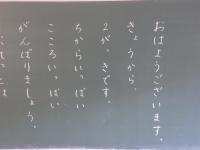 おはようございます。
きょうから、
２がっきです。
ちからいっぱい
こころいっぱい
がんばりましょう。